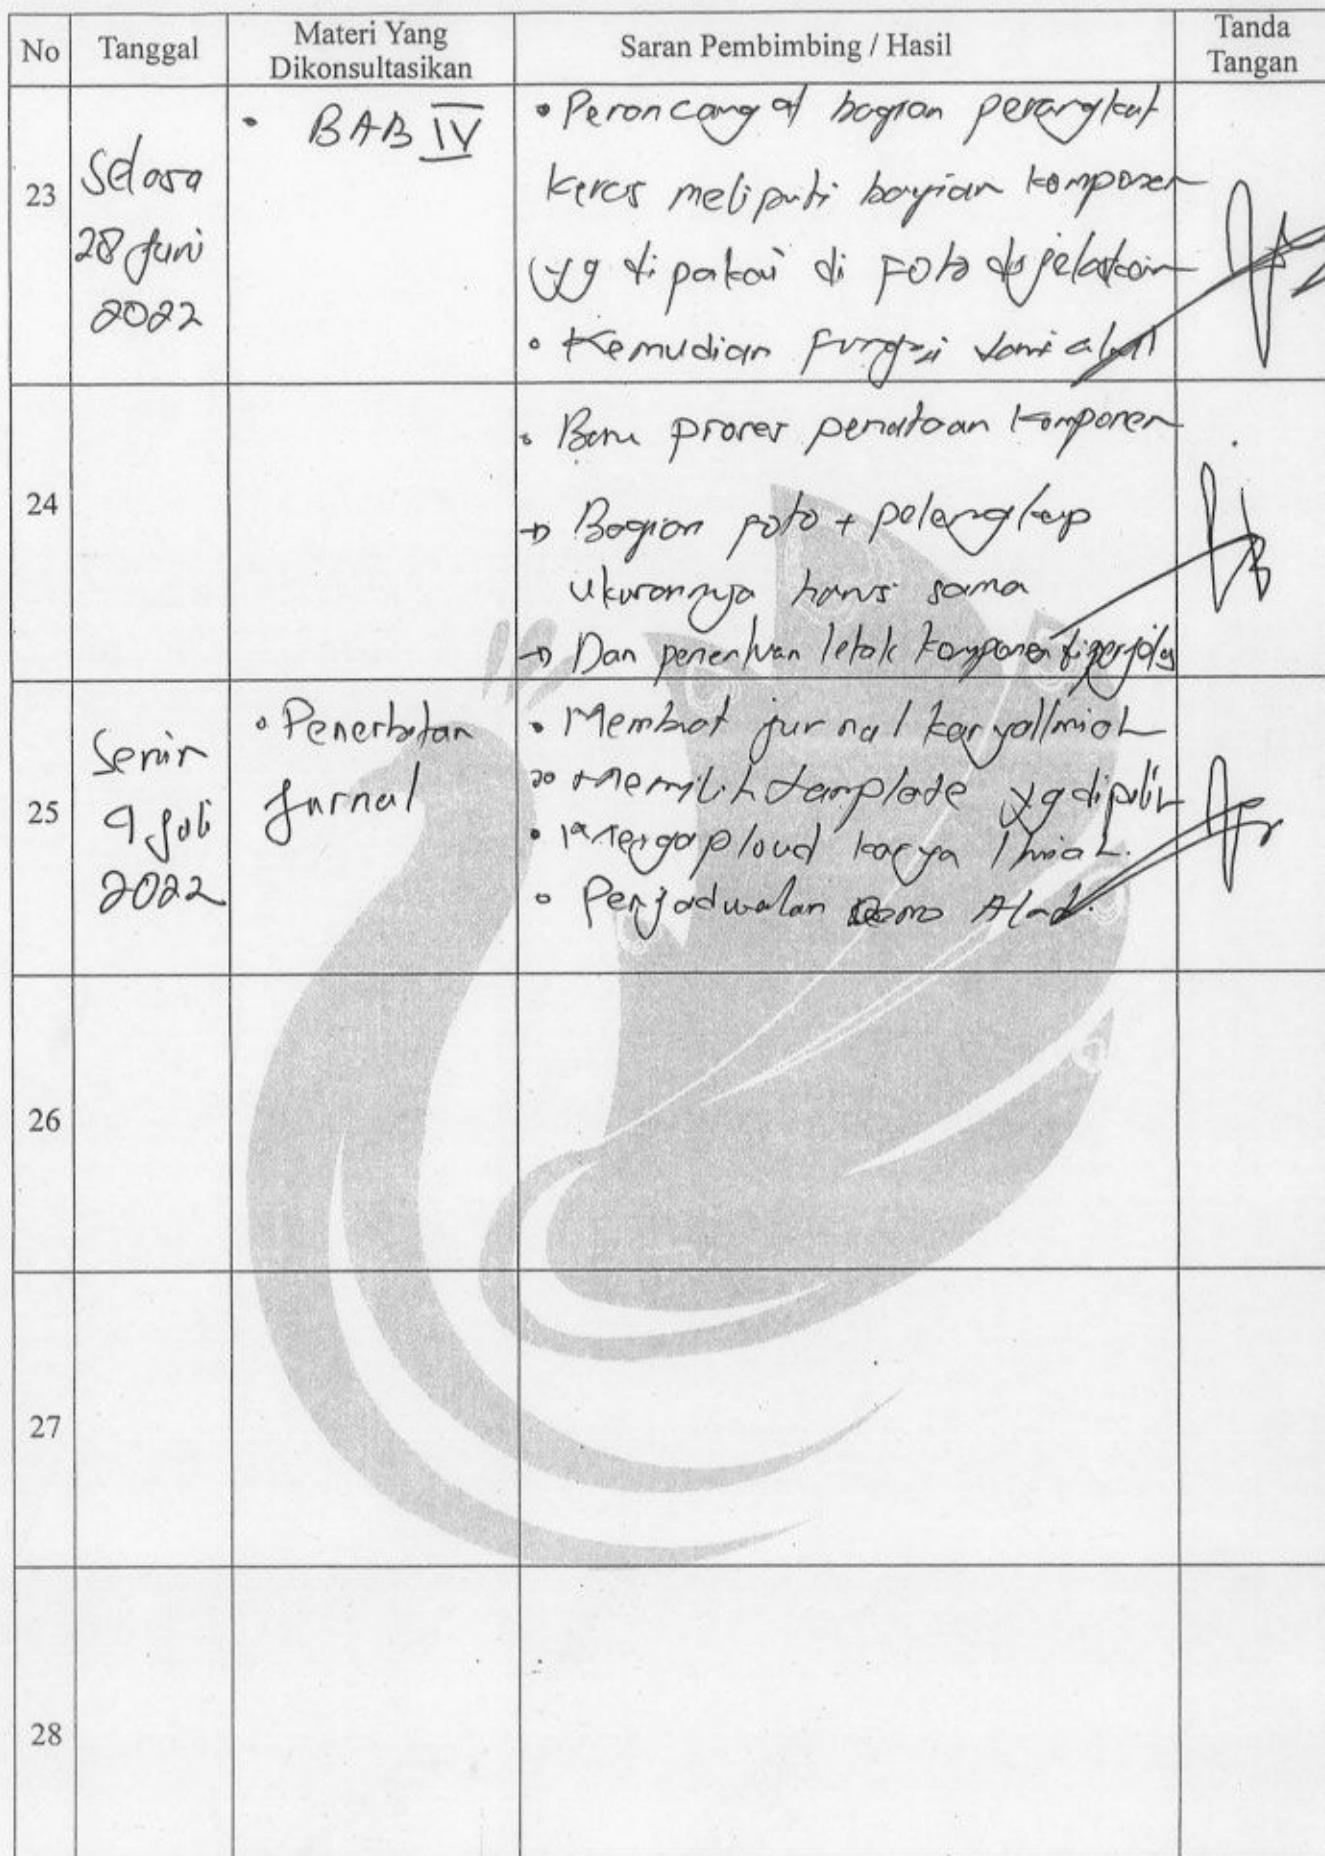 No Tanggal Materi Yang Dikonsultasikan Saran Pembimbing / Hasil Tanda Tangan
23
Selasa
28 Juni
2022
• BAB IV
• Perancangan bagian perangkat
keras meliputi bagian komponen
yg dipakai di foto dijelaskan
• Kemudian fungsi alat
24
• Baru proses penataan komponen
→ Bagian foto + pelengkap
ukurannya harus sama
→ Dan penentuan letak komponen diperjelas
25
Senin
9 Juli
2022
• Penerbitan
Jurnal
• Membuat jurnal karya Ilmiah
• Memilih tamplate yg dipilih
• karya Ilmiah.
• Penjadwalan Demo Alat.
26
27
28